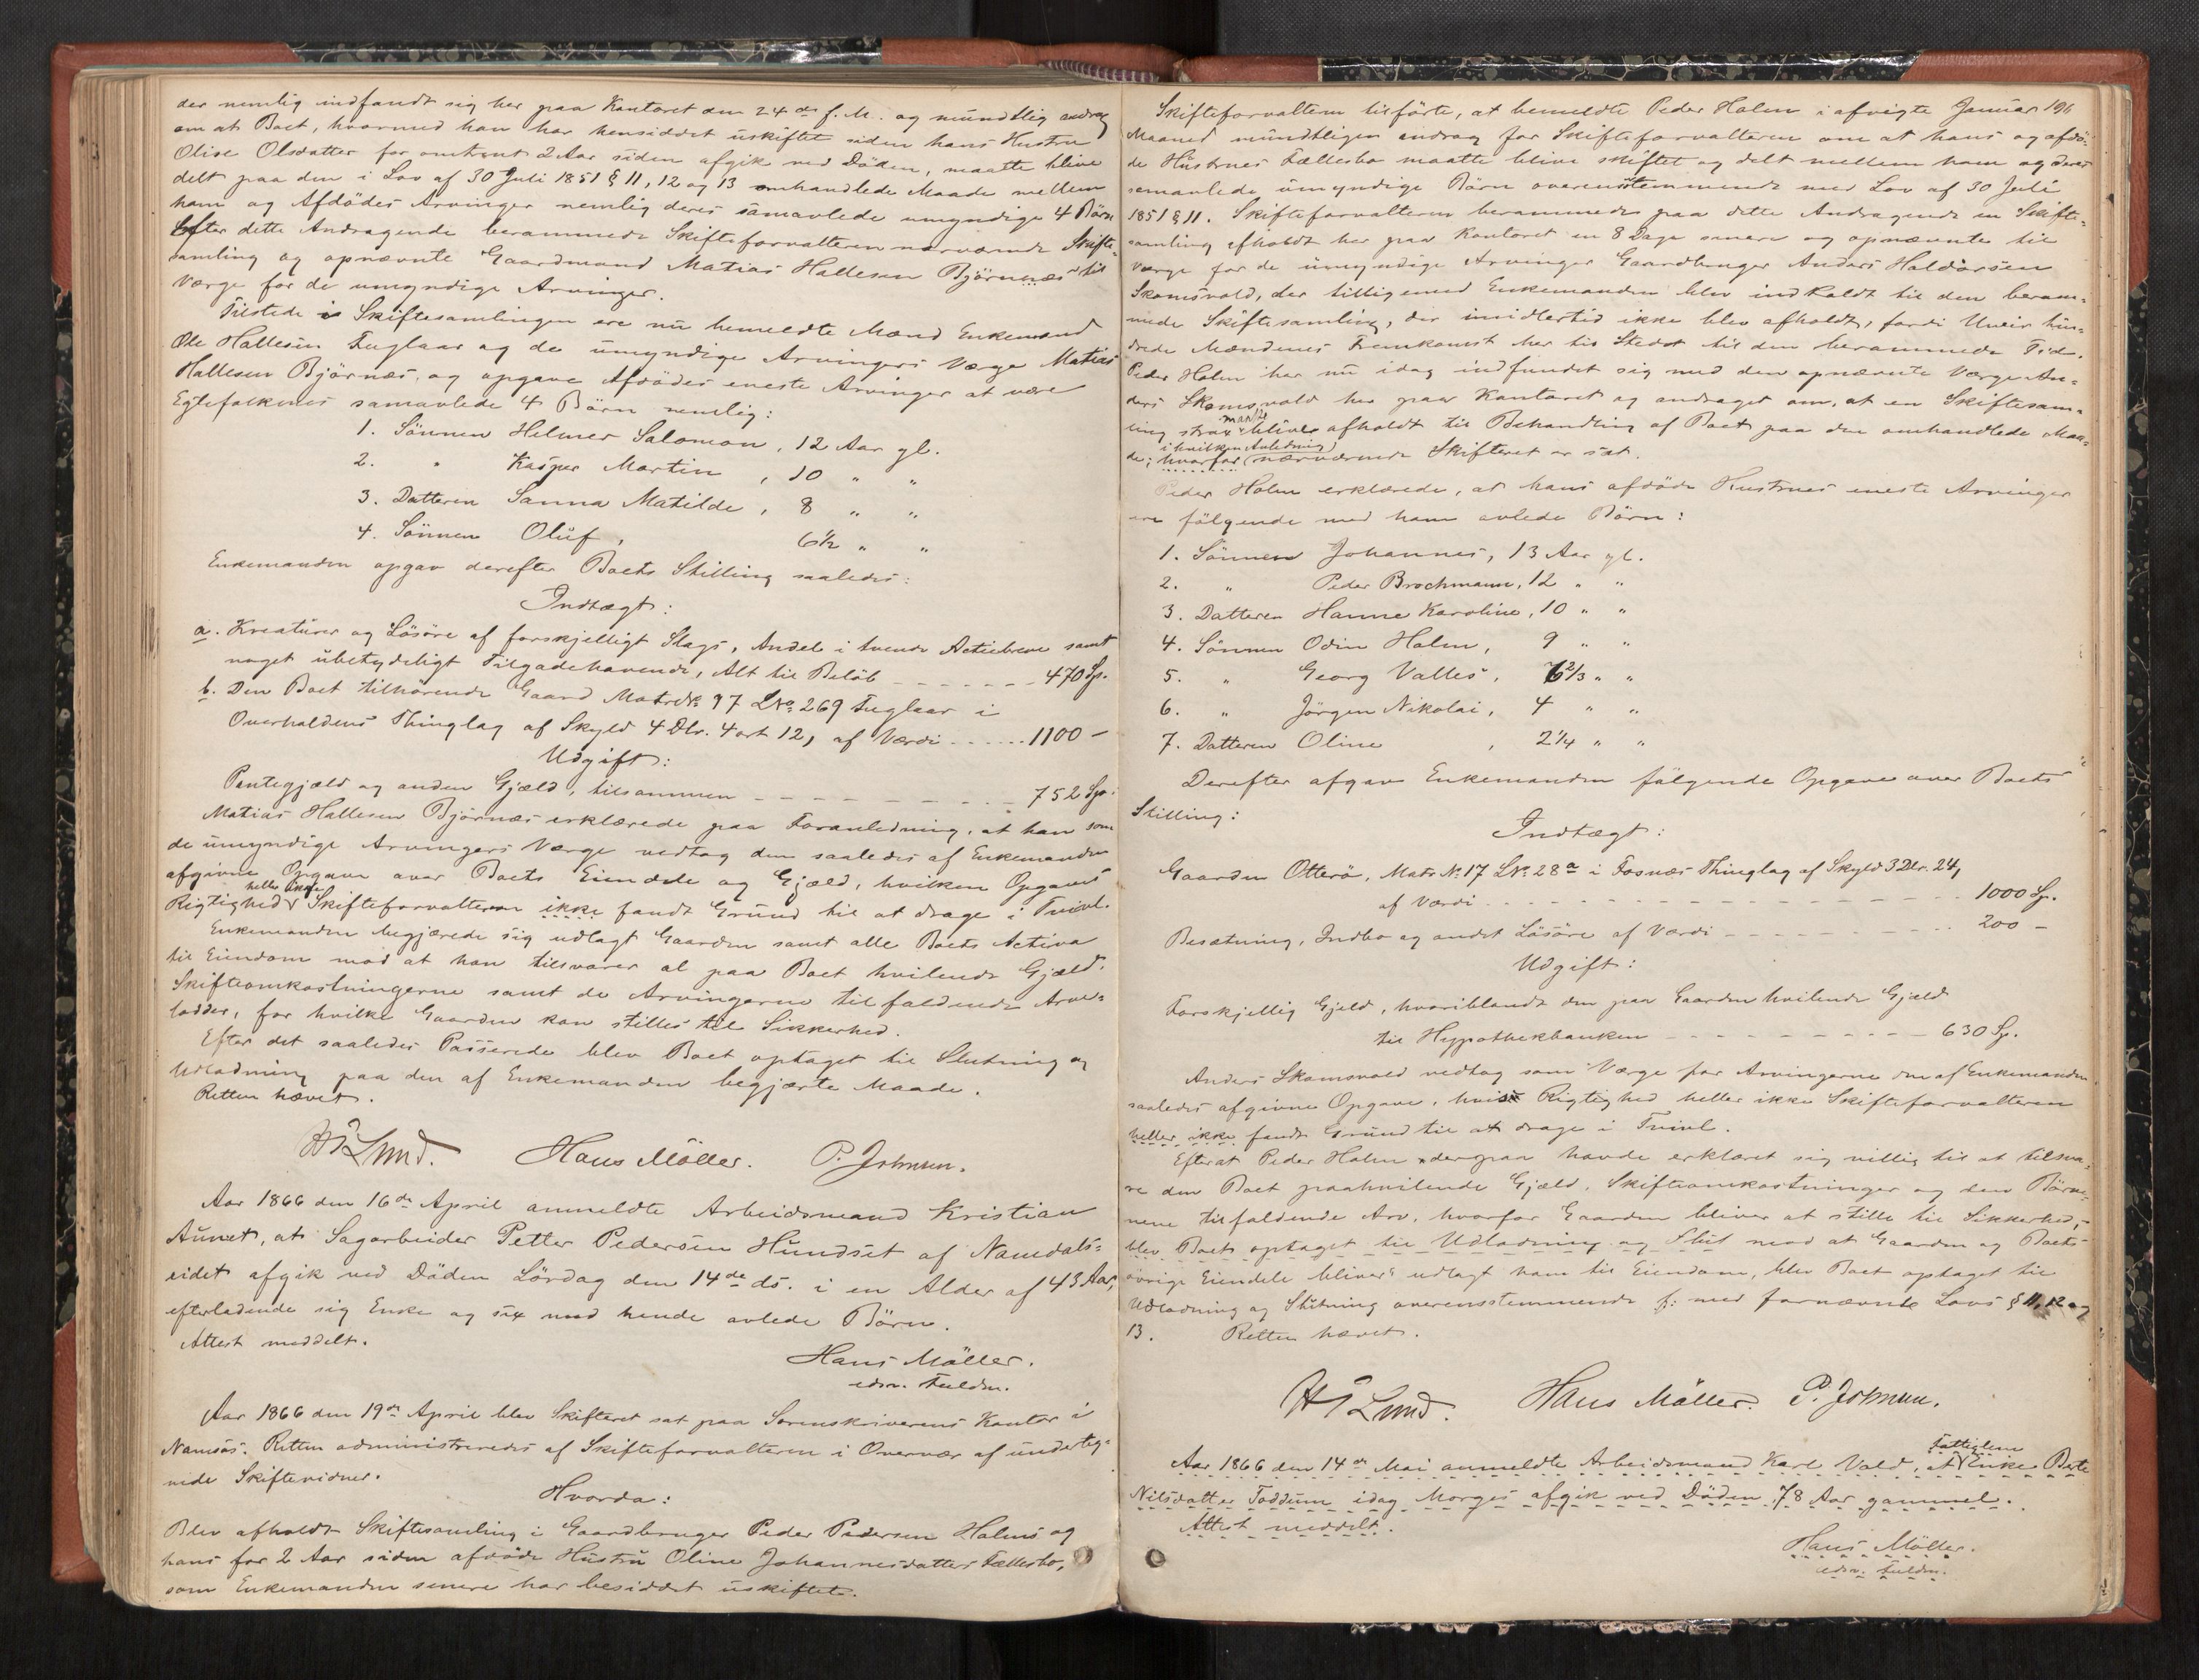 der nemlig indfandt sig her paa Kontoret den 24de f. M. og mundtlig androg
om at Boet, hvormed han har hensiddet uskiftet siden hans Hustru
Olise Olsdatter for omtrent 2 Aar siden afgik ved Döden, maatte blive
delt paa den i Lov af 30 Juli 1851 § 11, 12 og 13 omhandlede Maade mellem
ham og Afdödes Arvinger nemlig deres samavlede umyndige 4 Börn
Efter dette Andragende berammede Skifteforvalteren nærværende Skifte-
samling og opnævnte Gaardmand Matias Hallesen Björnnæs til
Værge for de umyndige Arvinger.
Tilstede i Skiftesamlingen ere nu bemeldte Mænd Enkemand
Ole Hallesen Fuglaar og de umyndige Arvingers Værge Matias
Hallesen Björnæs, og opgave Afdödes eneste Arvinger at være
Egtefolkenes samavlede 4 Börn nemlig:
1. Sönnen Helmer Salomon, 12 Aar gl.
2. " Kasper Martin, 10 " "
3. Datteren Sanna Matilde, 8 " "
4. Sönnen Oluf, 6½ " "
Enkemanden opgav derefter Boets Stilling saaledes:
Indtægt:
a. Kreaturer og Lösöre af forskjelligt Slags, Andel i tvende Actiebreve samt
noget ubetydeligt Tilgodehavende, Alt til Belöb - - - - - - - 470 Sp.
b. Den Boet tilhörende Gaard Matr№ 97 L№ 269 Fuglaar i
Overhaldens Thinglag af Skyld 4 Dlr. 4 ort 12, af Værdi ...... 1100 -
Udgift:
Pantegjæld og anden Gjæld, tilsammen - - - - - - - - - 752 Sp.
Matias Hallesen Björnæs erklærede paa Foranledning, at han som
de umyndige Arvingers Værge vedtog den saaledes af Enkemanden
afgivne Opgave over Boets Eiendele og Gjæld, hvilken Opgaves
heller ikke
Rigtighed Skifteforvalteren ikke fandt Grund til at drage i Tvivl.
Enkemanden begjærede sig udlagt Gaarden samt alle Boets Activa
til Eiendom mod at han tilsvarer al paa Boet hvilende Gjæld,
Skifteomkostningerne samt de Arvingerne tilfaldende Arve-
lodder, for hvilke Gaarden kan stilles til Sikkerhed.
Efter det saaledes Passerede blev Boet optaget til Slutning og
Udlodning paa den af Enkemanden begjærte Maade.
Retten hævet.
Lund. Hans Möller. P. Johnsen.
Aar 1866 den 16de April anmeldte Arbeidsmand Kristian
Aunet, at Sagarbeider Petter Pedersen Hundset af Namdals-
eidet afgik ved Döden Lördag den 14de ds. i en Alder af 43 Aar,
efterladende sig Enke og sex med hende avlede Börn.
Attest meddelt.
Hans Möller.
edsv. Fuldm.
Aar 1866 den 19de April blev Skifteret sat paa Sorenskriverens Kontor i
Namsos. Retten administreredes af Skifteforvalteren i Overvær af underteg-
nede Skiftevidner.
Hvorda:
Blev afholdt Skiftesamling i Gaardbruger Peder Pedersen Holms og
hans for 2 Aar siden afdöde Hustru Oline Johannesdatters Fællesbo,
som Enkemanden senere har besiddet uskiftet.
196
Skifteforvalteren tilförte, at bemeldte Peder Holm i afvigte Januar
Maaned mundtligen androg for Skifteforvalteren om at hans og afdö-
de Hustrues Fællesbo maatte blive skiftet og delt mellem ham og deres
samavlede umyndige Börn overensstemmende med Lov af 30 Juli
1851 § 11. Skifteforvalteren berammede paa dette Andragende en Skifte-
samling afholdt her paa Kontoret en 8 Dage senere og opnævnte til
Værge for de umyndige Arvinger Gaardbruger Anders Haldorsen
Skomsvold, der tilligemed Enkemanden blev indkaldt til den beram-
mede Skiftesamling, der imidlertid ikke blev afholdt, fordi Uveir hin-
drede Mændenes Fremkomst her til Stedet til den berammede Tid.
Peder Holm har nu idag indfundet sig med den opnævnte Værge An-
ders Skomsvold her paa Kontoret og andraget om, at en Skiftesam-
maatte
ling strax blive afholdt til Behandling af Boet paa den omhandlede Maa-
i hvilken Anledning
de; hvorfor nærværende Skifteret er sat.
Peder Holm erklærede, at hans afdöde Hustrues eneste Arvinger
ere fölgende med ham avlede Börn:
1. Sönnen Johannes, 13 Aar gl.
2. " Peder Brochmann, 12 " "
3. Datteren Hanne Karoline, 10 " "
4. Sönnen Odin Holm, 9 " "
5. " Georg Valles, 6 2/3 " "
6. " Jörgen Nikolai, 4 " "
7. Datteren Oline, 2¼ " "
Derefter afgav Enkemanden fölgende Opgave over Boets
Stilling:
Indtægt:
Gaarden Otterö, Matr № 17 L№ 28a i Fosnæs Thinglag af Skyld 3 Dlr. 24,
af Værdi - - - - - - - - - 1000 Sp.
Besætning, Indbo og andet Lösöre af Værdi - - - - - - - 200 -
Udgift:
Forskjellig Gjeld, hvoriblandt den paa Gaarden hvilende Gjæld
til Hypothekbanken - - - - - - - - - 630 Sp.
Anders Skomsvold vedtog som Værge for Arvingerne den af Enkemanden
saaledes afgivne Opgave, hvis Rigtighed heller ikke Skifteforvalteren
heller ikke fandt Grund til at drage i Tvivl.
Efterat Peder Holm derpaa havde erklæret sig villig til at tilsva-
re den Boet paahvilende Gjæld, Skifteomkostninger og den Bör-
nene tilfaldende Arv, hvorfor Gaarden bliver at stille til Sikkerhed,
blev Boets optaget til Udlodning og Slut mod at Gaarden og Boets
övrige Eiendele bliver udlagt ham til Eiendom, blev Boet optaget til
Udlodning og Slutning overensstemmende f: med fornævnte Lovs § 11, 12 og
13. Retten hævet.
Lund. Hans Möller. P. Johnsen.
Fattiglem
Aar 1866 den 14de Mai anmeldte Arbeidsmand Karl Vold, at Enke Berte
Nilsdatter Toddum idag Morges afgik ved Döden 78 Aar gammel.
Attest meddelt.
Hans Möller.
edsv. Fuldm.